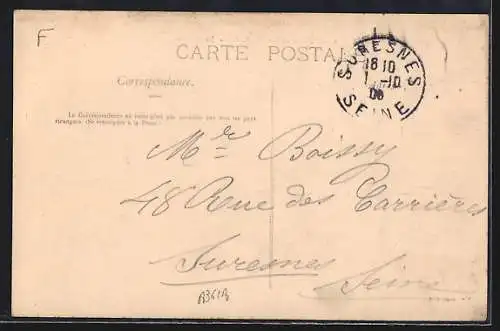 F
CARTE POSTALE
SURESNES
18 10
1 -10
08
SEINE
Correspondance.
La Correspondance au recto n'est pas acceptée par tous les pays
étrangers. (Se renseigner à la Poste.)
Mr Boissy
48 Rue des Carrières
Suresnes
Seine